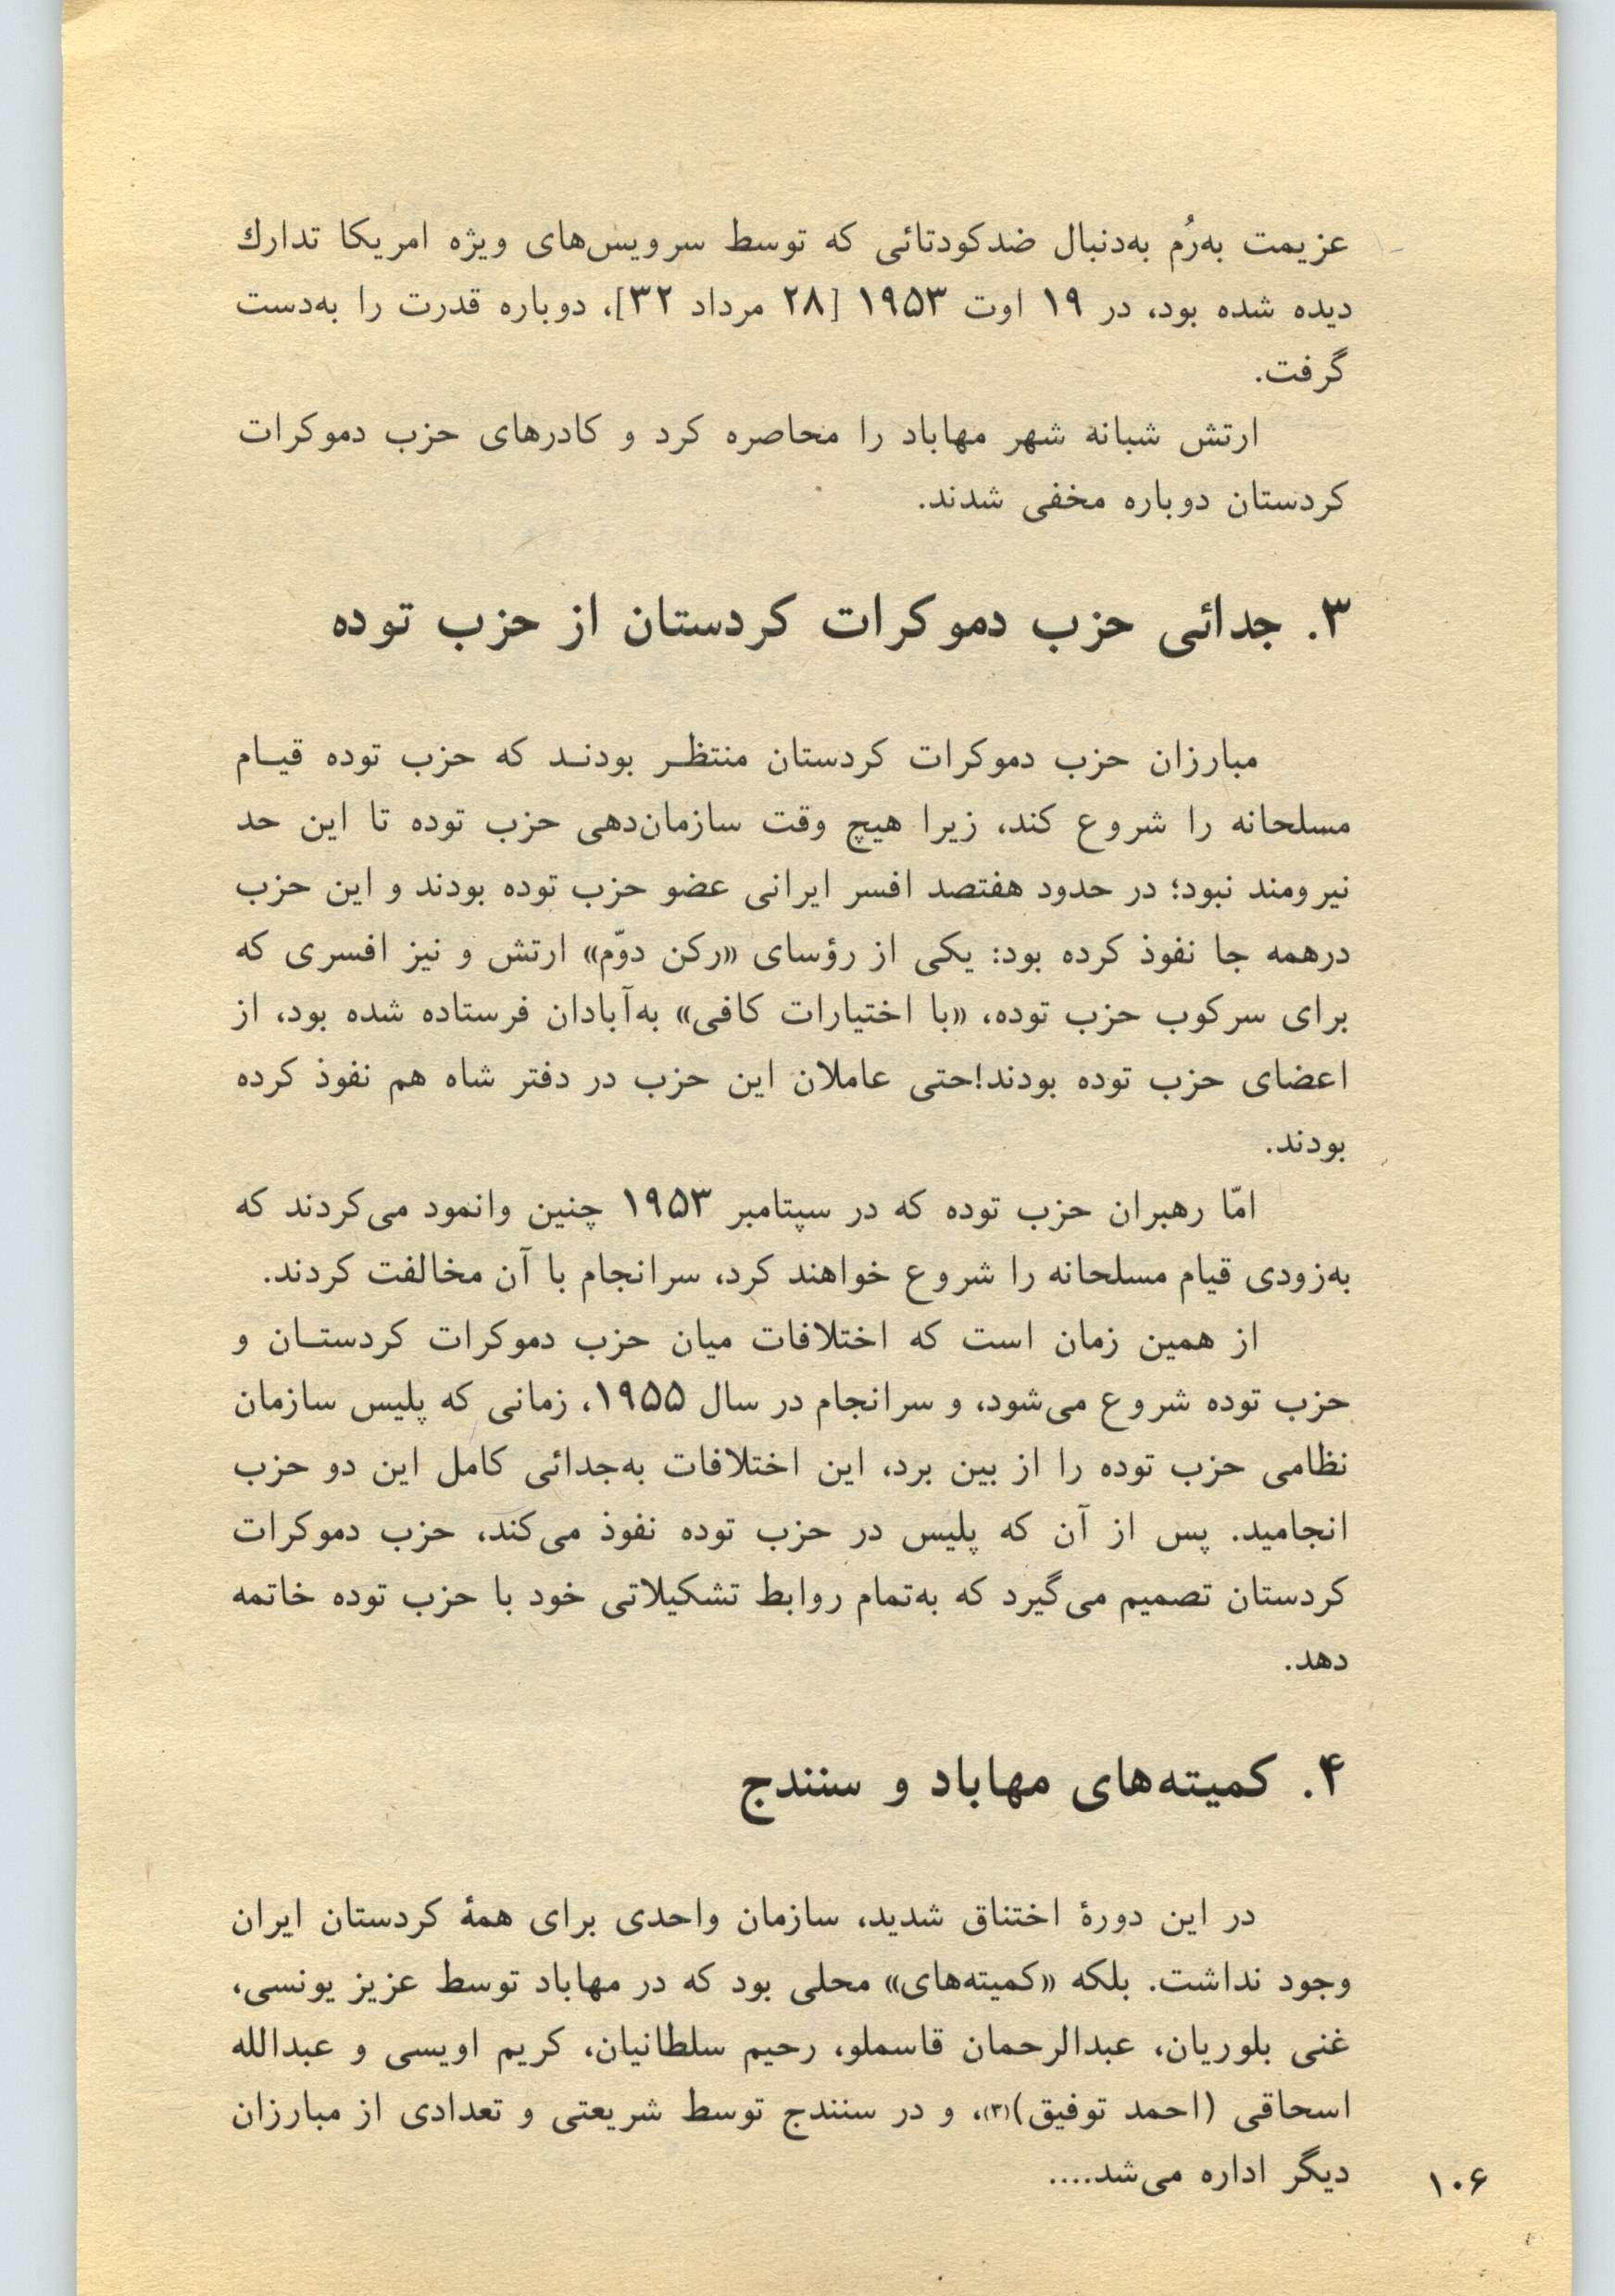 عزیمت به‌رُم به‌دنبال ضدکودتائی که توسط سرویس‌های ویژه امریکا تدارك
دیده شده بود، در ۱۹ اوت ۱۹۵۳ [۲۸ مرداد ۳۲]، دوباره قدرت را به‌دست
گرفت.
ارتش شبانه شهر مهاباد را محاصره کرد و کادرهای حزب دموکرات
کردستان دوباره مخفی شدند.
۳. جدائی حزب دموکرات کردستان از حزب توده
مبارزان حزب دموکرات کردستان منتظـر بودنـد که حزب توده قیـام
مسلحانه را شروع کند، زیرا هیچ وقت سازمان‌دهی حزب توده تا این حد
نیرومند نبود؛ در حدود هفتصد افسر ایرانی عضو حزب توده بودند و این حزب
درهمه جا نفوذ کرده بود: یکی از رؤسای «رکن دوّم» ارتش و نیز افسری که
برای سرکوب حزب توده، «با اختیارات کافی» به‌آبادان فرستاده شده بود، از
اعضای حزب توده بودند!حتی عاملان این حزب در دفتر شاه هم نفوذ کرده
بودند.
امّا رهبران حزب توده که در سپتامبر ۱۹۵۳ چنین وانمود می‌کردند که
به‌زودی قیام مسلحانه را شروع خواهند کرد، سرانجام با آن مخالفت کردند.
از همین زمان است که اختلافات میان حزب دموکرات کردستـان و
حزب توده شروع می‌شود، و سرانجام در سال ۱۹۵۵، زمانی که پلیس سازمان
نظامی حزب توده را از بین برد، این اختلافات به‌جدائی کامل این دو حزب
انجامید. پس از آن که پلیس در حزب توده نفوذ می‌کند، حزب دموکرات
کردستان تصمیم می‌گیرد که به‌تمام روابط تشکیلاتی خود با حزب توده خاتمه
دهد.
۴. کمیته‌های مهاباد و سنندج
در این دورهٔ اختناق شدید، سازمان واحدی برای همهٔ کردستان ایران
وجود نداشت. بلکه «کمیته‌های» محلی بود که در مهاباد توسط عزیز یونسی،
غنی بلوریان، عبدالرحمان قاسملو، رحیم سلطانیان، کریم اویسی و عبدالله
اسحاقی (احمد توفیق)(۳)، و در سنندج توسط شریعتی و تعدادی از مبارزان
دیگر اداره می‌شد....
۱۰۶